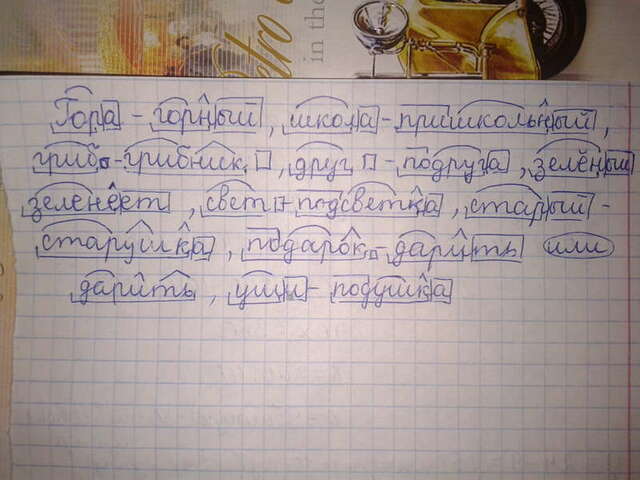 etro
in the
Гора - горный, школа - пришкольный,
гриб - грибник, друг - подруга, зелёный
зеленеет, свет - подсветка, старый -
старушка, подарок - дарить или
дарить, уши - подушка